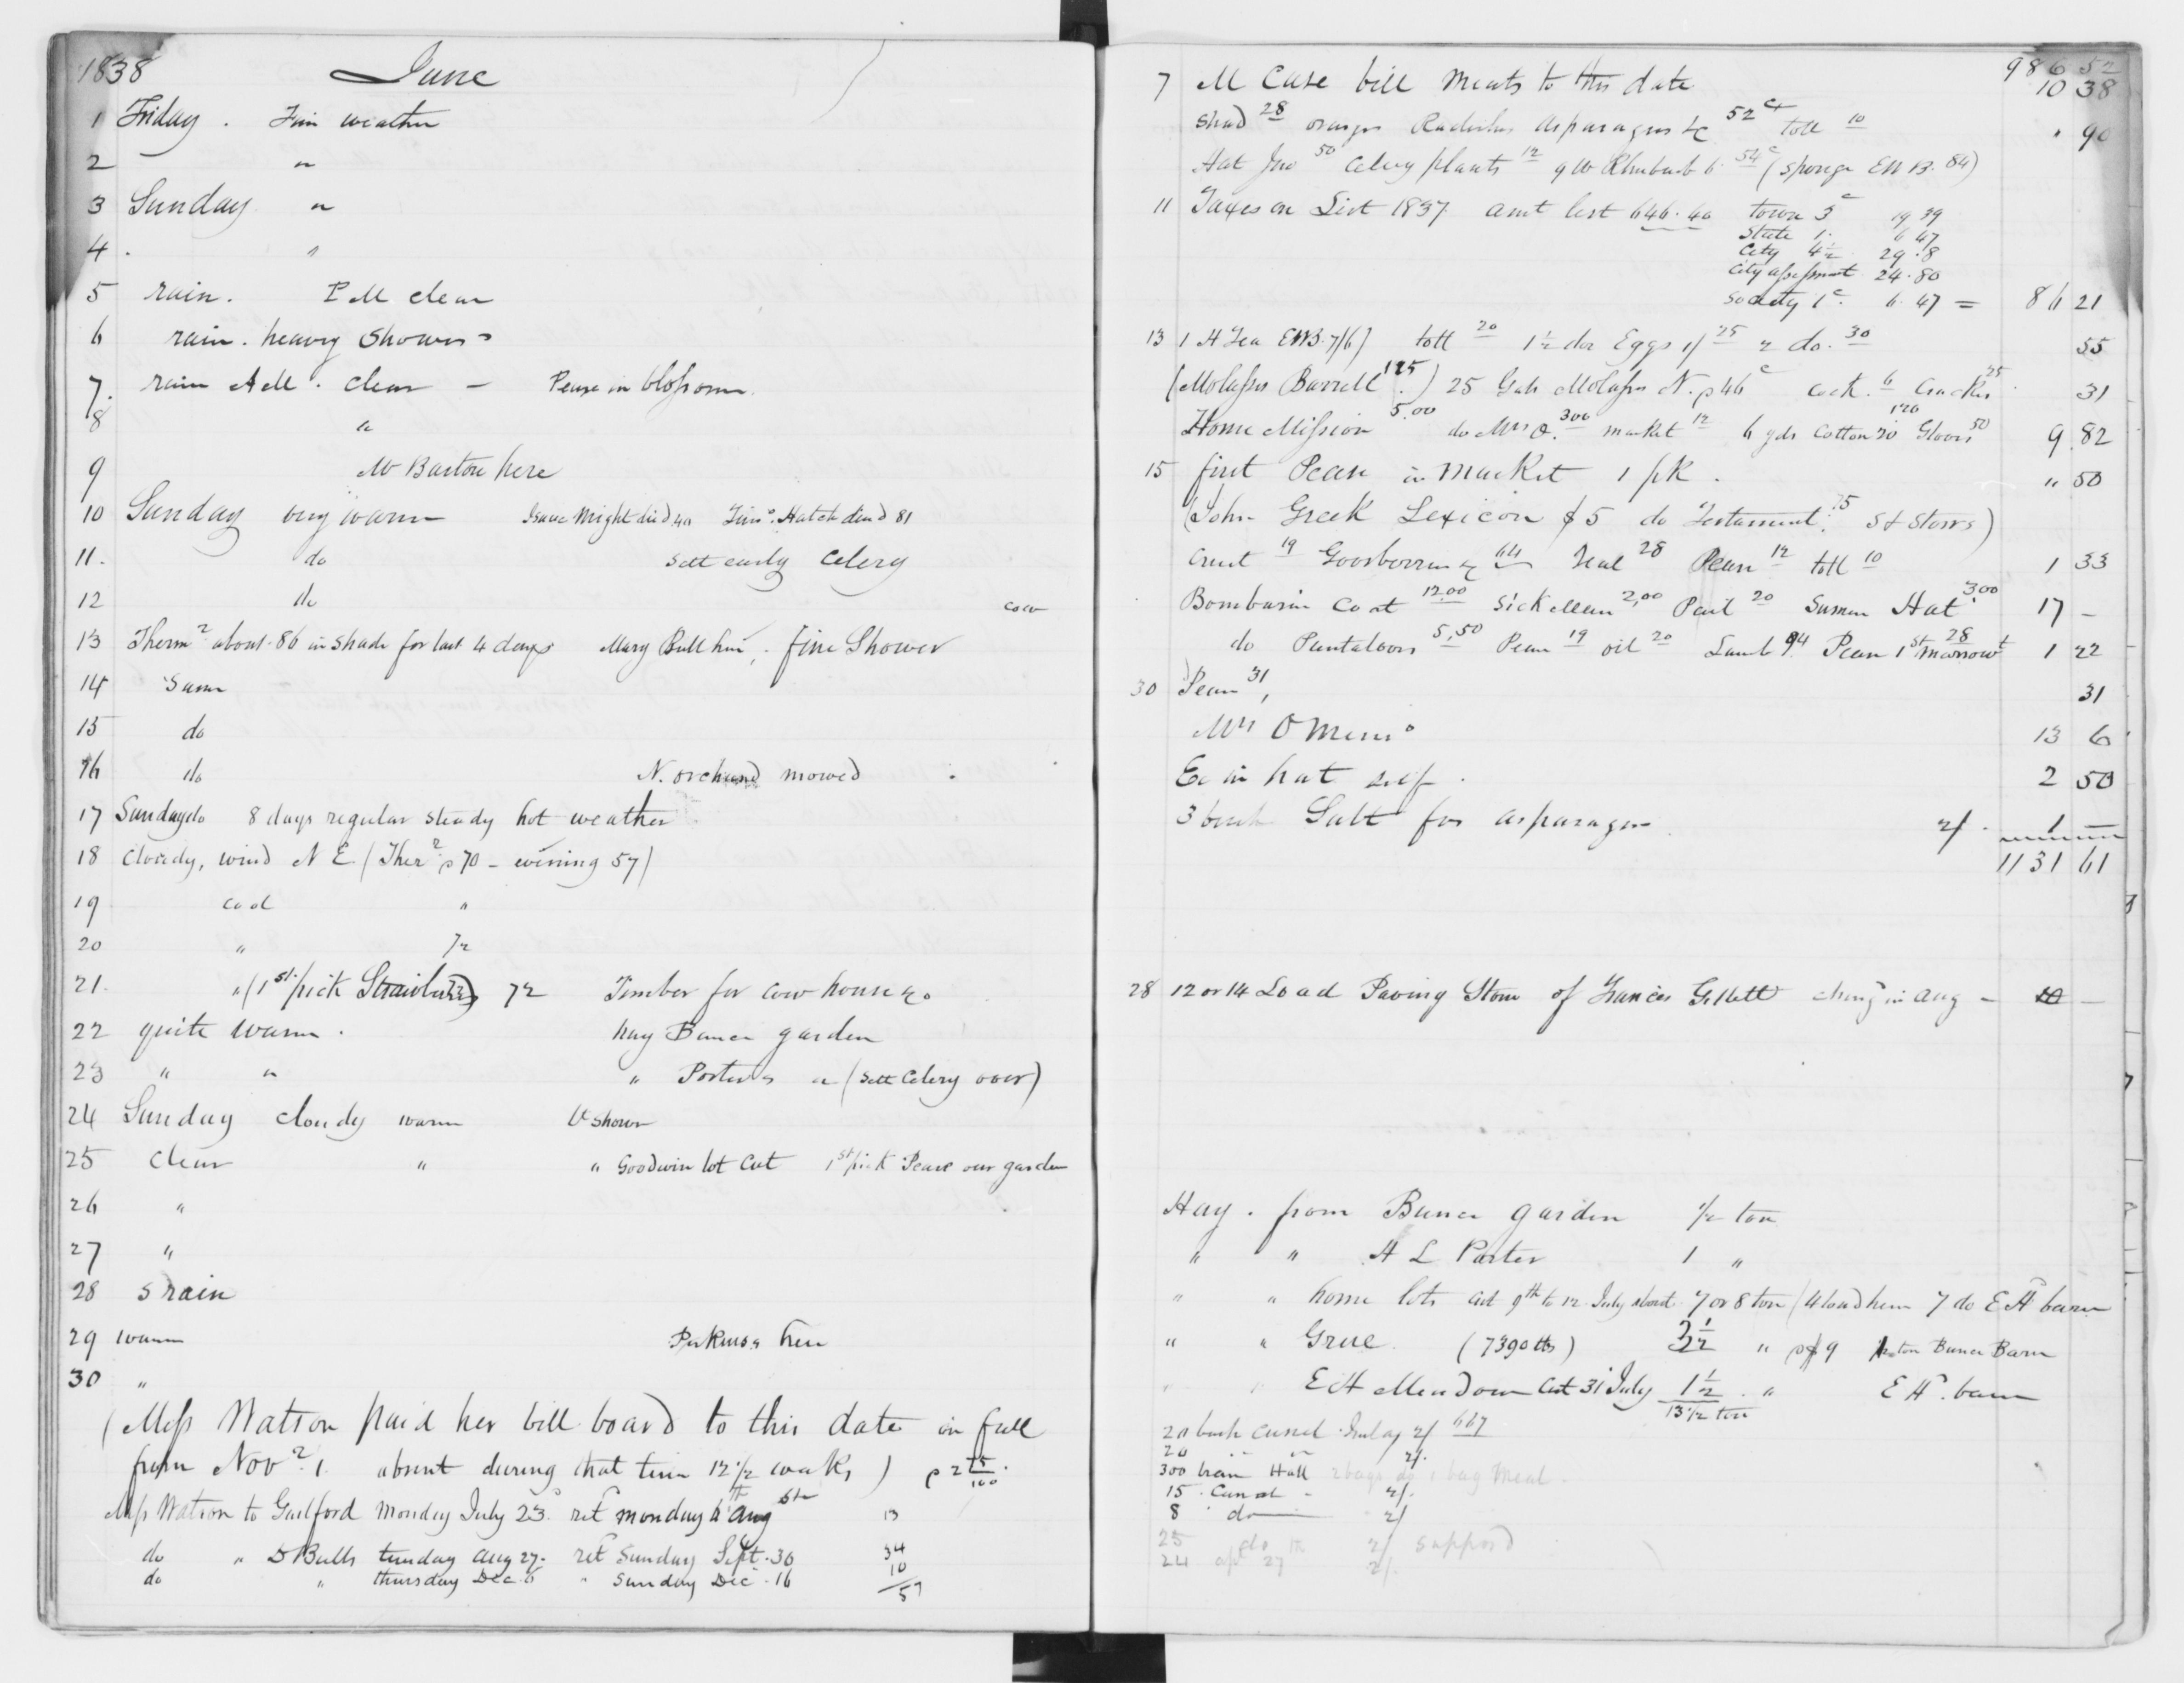 1838 June
1 Friday . Fair weather
2 "
3 Sunday "
4 . "
5 rain . P M clear
6 rain . heavy showers
7. rain A M . clear — Pease in blossom
8 "
9 Mr Barton here
10 Sunday very warm Isaac Wright died 40 Timo. Hatch died 81
11. do Sett early Celery
12 do
cow
13 Therm about 86 in shade for last 4 days Mary Bull here, fine Shower
14 Same
15 do
16 do N. orchard mowed
17 Sunday do 8 days regular steady hot weather
18 Cloudy, wind N E (Ther 70 - evening 57)
19 cool "
20 " 72
21. " (1st pick Strawberrys) 72 Timber for cow house &c
22 quite warm . hay Bunce garden
23 " " " Porters " (Sett Celery over)
24 Sunday cloudy warm shower
25 Clear " " Goodwin lot Cut 1st pick Pease our garden
26 "
27 "
28 S rain
29 warm Perkins here
30 "
(Miss Watson paid her bill board to this date in full
from Nov 1. absent during that time 12 1/2 weeks) 2 25/100
Miss Watson to Guilford Monday July 23. ret monday 6th Aug 13
do " D Bulls tuesday Aug 27. ret Sunday Sept. 30 34
do " thursday Dec. 6 " Sunday Dec. 16 10
57
986 52
7 M Case bill meats to this date 10 38
Shad 28 oranges Radishes Asparagus &c 52 ct toll 10 . 90
Hat Jno 50 Celery plants 12 9 lb Rhubarb 6 54c (Sponge EWB. 84)
11 Taxes on List 1837 amt list 646.40 town 3c 19 39
State 1. 6 47
City 4 1/2 29.8
City assessment 24.80
Society 1c. 6.47 = 86 21
13 1 lb Tea EWB 7/6) toll 20 1 1/2 doz Eggs 1/ 25 2 do. 30 55
(Molasses Barrell 1.25) 25 Gals Molasses N. p 46c Cock. 6 Crackers 25 31
Home Mission 5.00 do Mrs O. 300 market 12 6 yds Cotton 20 120 Gloves 50 9 82
15 first Pease in market 1 pk . " 50
(John Greek Lexicon $5 do Testament 75 S & Storrs)
Cruet 19 Goosberries & 64 Veal 28 Pease 12 toll 10 1 33
Bombasin Coat 12.00 Sickellem 2.00 Pail 20 Summer Hat 3.00 17 –
do Pantaloons 5.50 Pease 19 oil 20 Lamb 94 Pease 1st marrowt 28 1 22
30 Pease 31, 31
Mrs O Memo 13 6
E. in hat self . 2 50
3 bush Salt for asparagus 2/ . 1 –
1131 61
28 12 or 14 Load Paving Stone of Francis Gillett chargd in Aug – 10 –
Hay . from Bunce garden 1/2 ton
" " H L Porter 1 "
" " home lots cut 9th to 12 July about 7 or 8 ton (4 load here 7 do E H barn
" " Grue (7390 lbs) 3 1/2 " p $9 ton Bunce Barn
" " E H Meadow Cut 31 July 1 1/2 " E H. barn
13 1/2 ton
20 bush Cunel 2/ 667
20 " " 2/.
300 bran Hall 2 bags do 1 bag Meal
15 . Canal - 2/.
8 do 2/
25 do 2/ suppos'd
24 apl 27 2/.